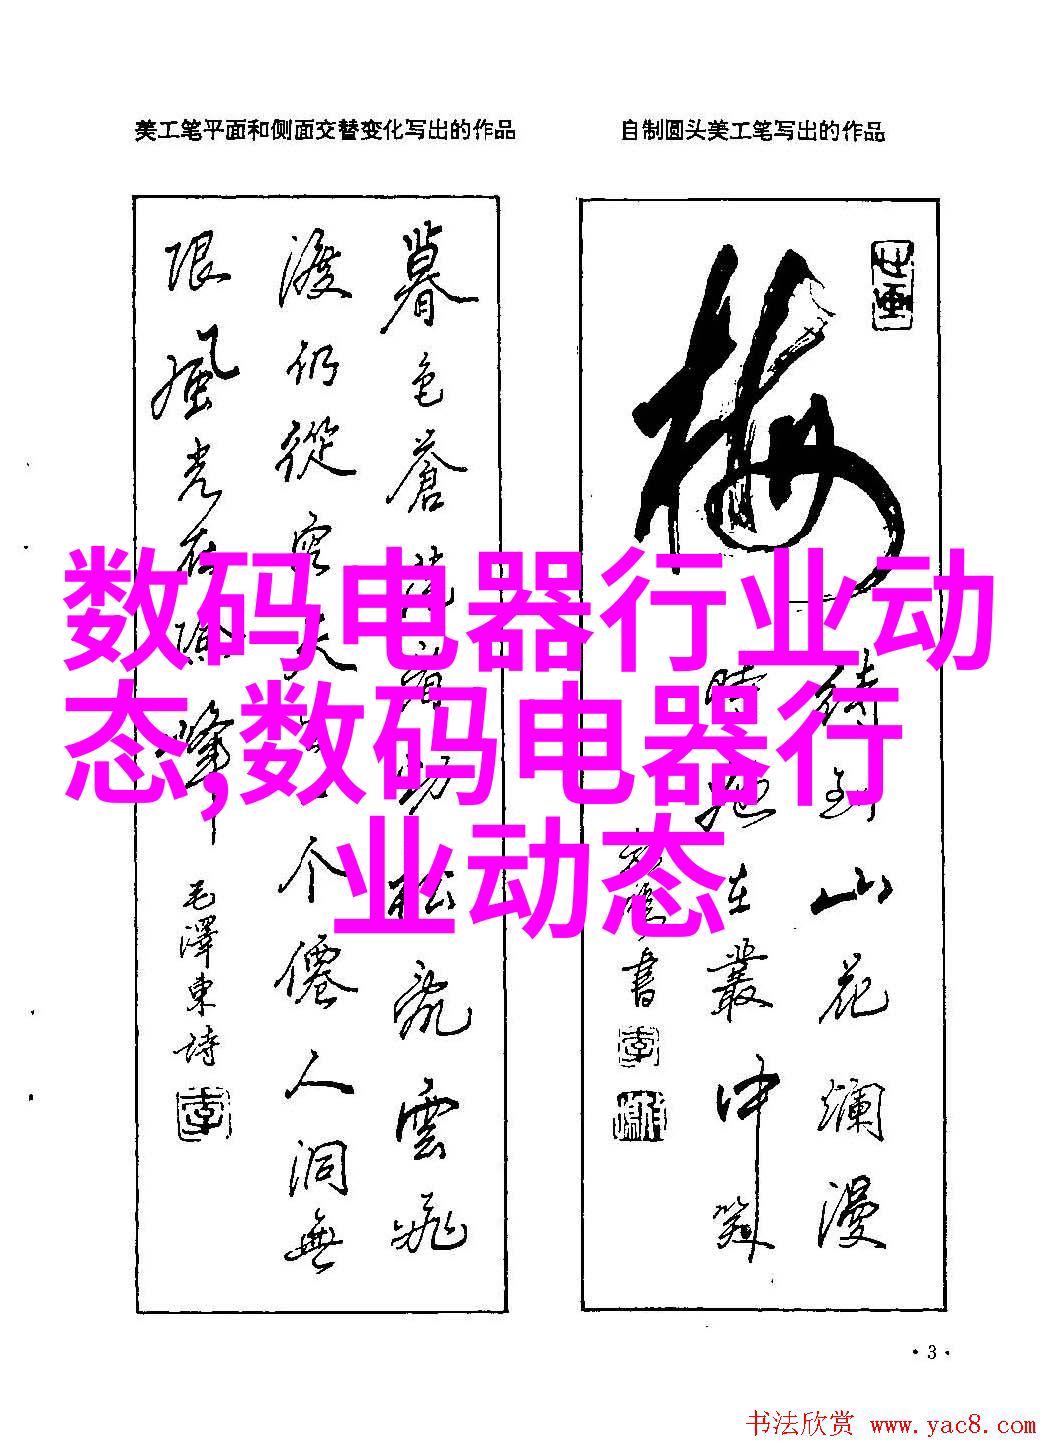 美工笔平面和侧面交替变化写出的作品
自制圆头美工笔写出的作品
暮色苍茫看劲松乱云飞
渡仍从容天生一个仙人洞无
限风光在险峰
毛泽东诗
梅
待到山花烂漫
时她在丛中笑
书
数码电器行业动
态,数码电器行
业动态
·3·
书法欣赏 www.yac8.com